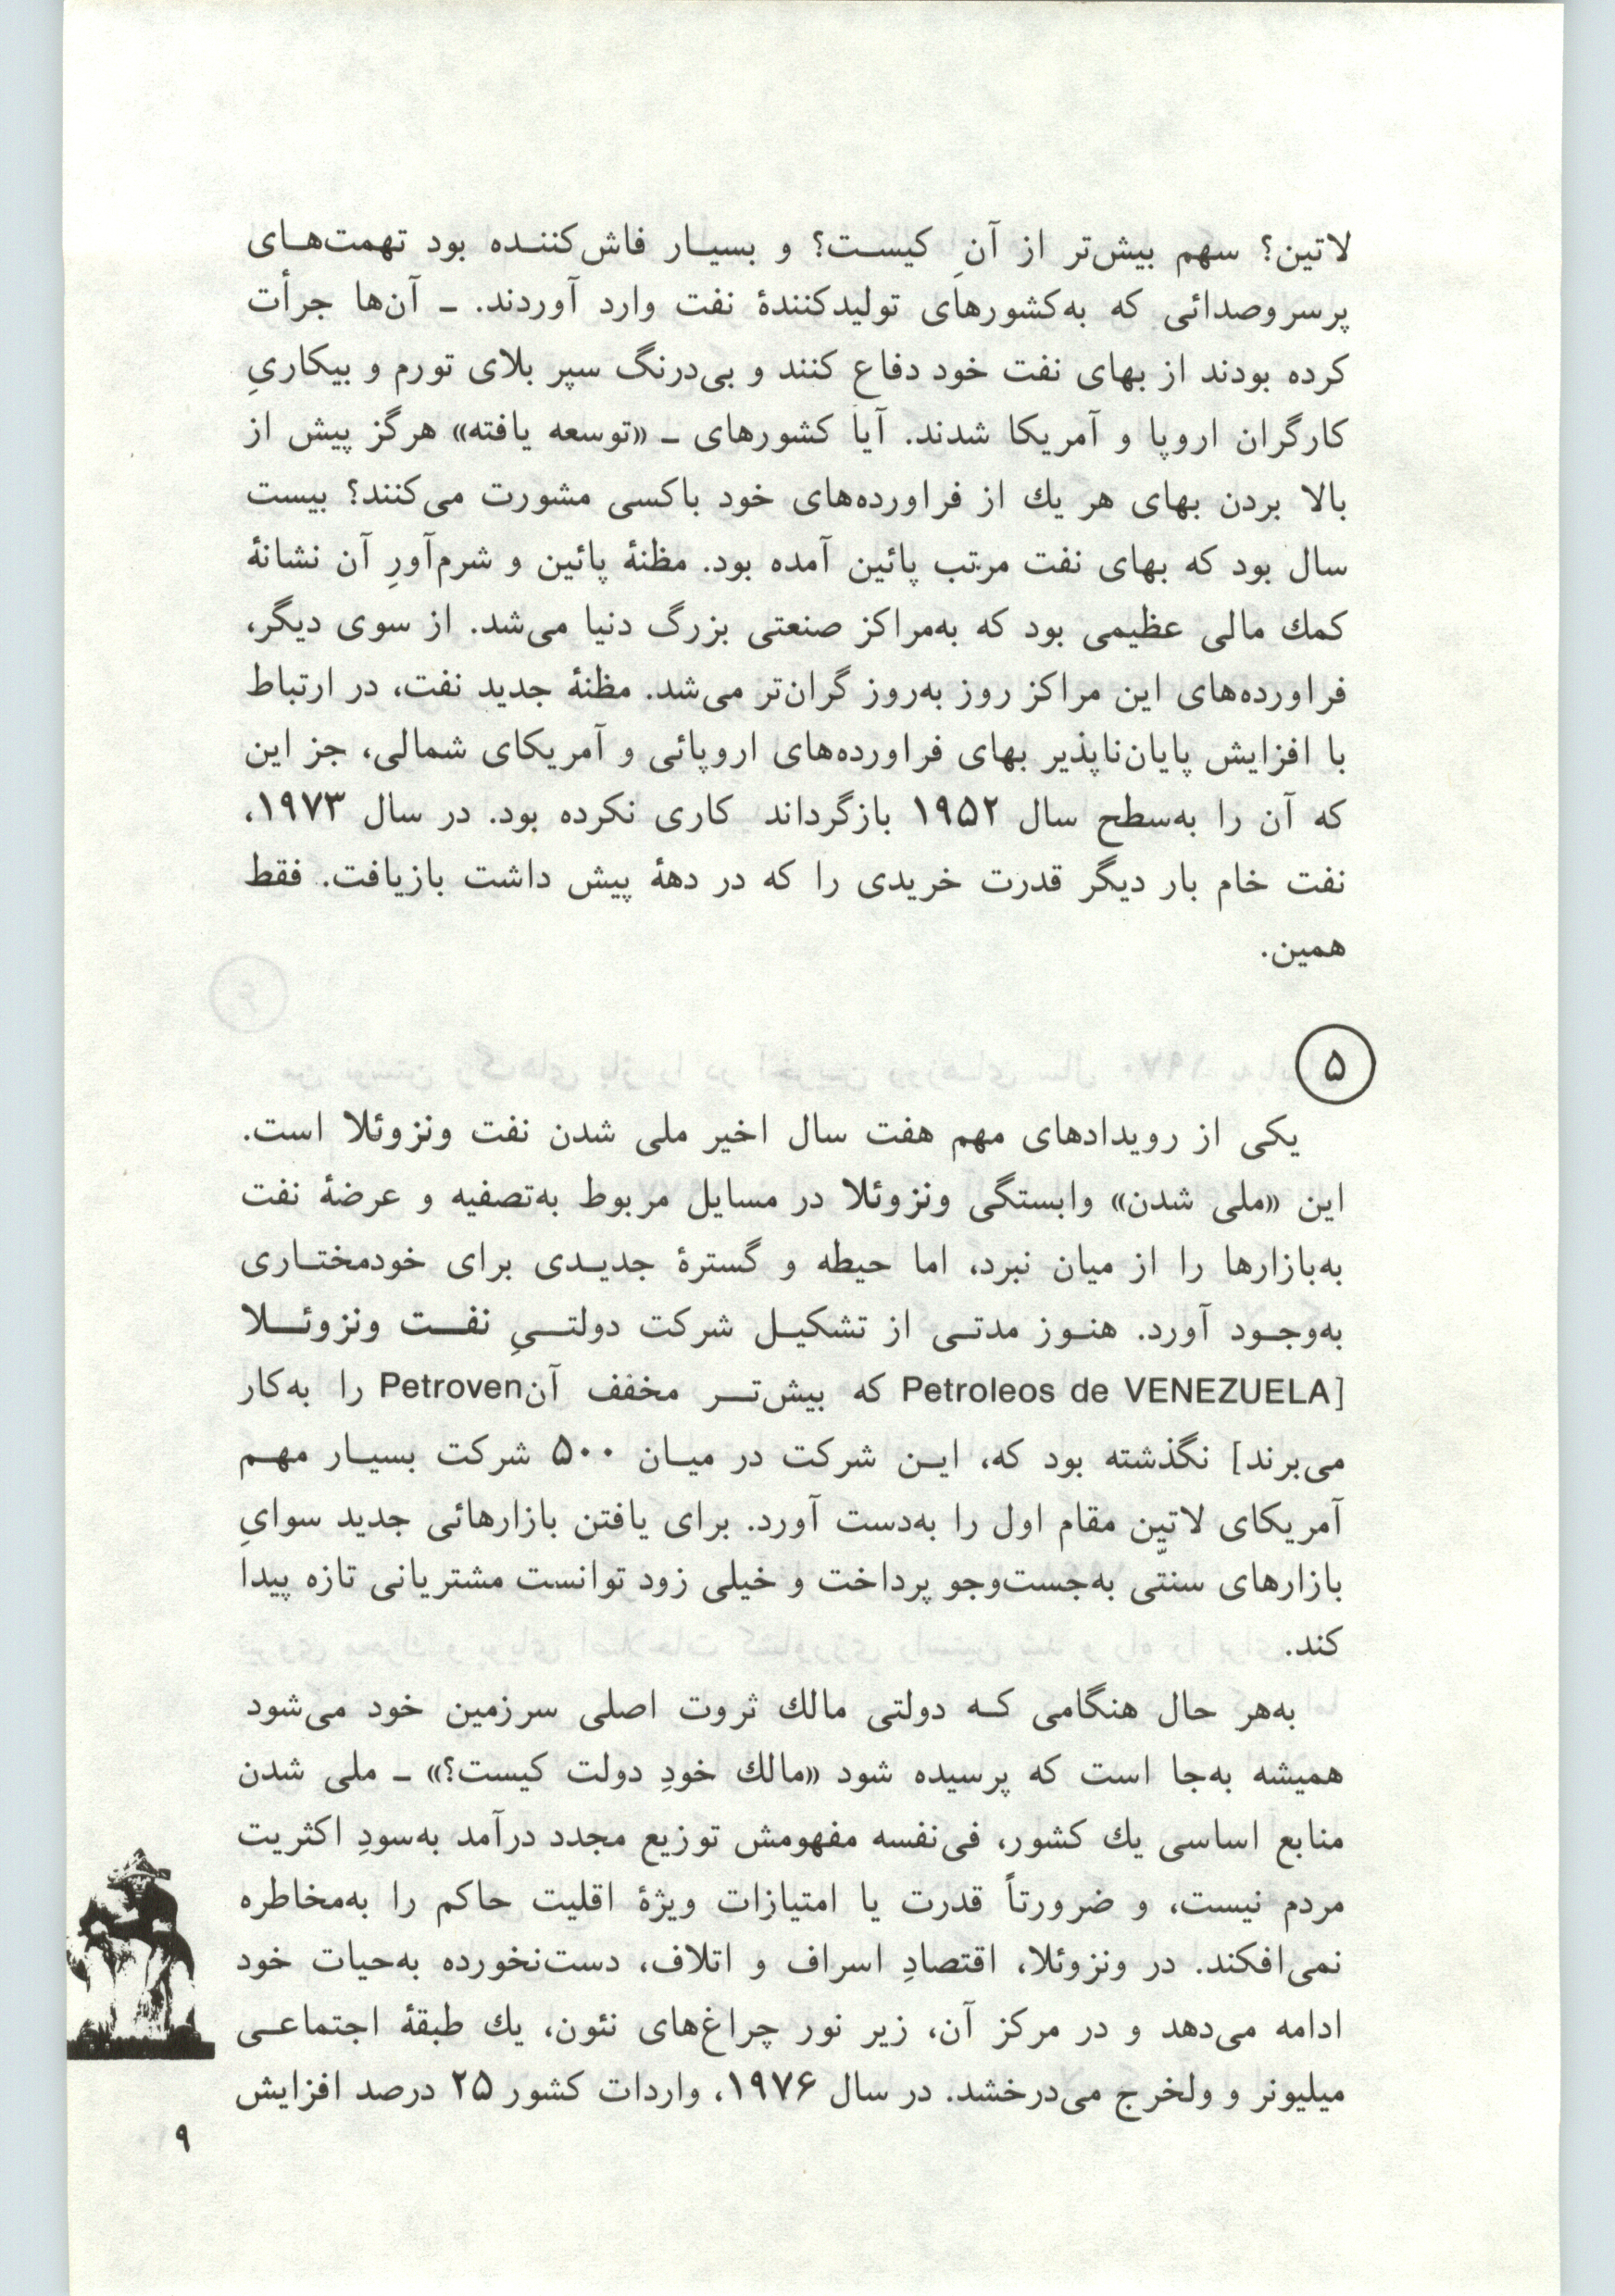 لاتین؟ سهم بیش‌تر از آنِ کیست؟ و بسیار فاش‌کننده بود تهمت‌های
پرسروصدائی که به‌کشورهای تولیدکنندهٔ نفت وارد آوردند. ـ آن‌ها جرأت
کرده بودند از بهای نفت خود دفاع کنند و بی‌درنگ سپر بلای تورم و بیکاریِ
کارگران اروپا و آمریکا شدند. آیا کشورهای ـ «توسعه یافته» هرگز پیش از
بالا بردن بهای هر یك از فراورده‌های خود باکسی مشورت می‌کنند؟ بیست
سال بود که بهای نفت مرتب پائین آمده بود. مظنهٔ پائین و شرم‌آورِ آن نشانهٔ
کمك مالی عظیمی بود که به‌مراکز صنعتی بزرگ دنیا می‌شد. از سوی دیگر،
فراورده‌های این مراکز روز به‌روز گران‌تر می‌شد. مظنهٔ جدید نفت، در ارتباط
با افزایش پایان‌ناپذیر بهای فراورده‌های اروپائی و آمریکای شمالی، جز این
که آن را به‌سطح سال ۱۹۵۲ بازگرداند کاری نکرده بود. در سال ۱۹۷۳،
نفت خام بار دیگر قدرت خریدی را که در دههٔ پیش داشت بازیافت. فقط
همین.
۵
یکی از رویدادهای مهم هفت سال اخیر ملی شدن نفت ونزوئلا است.
این «ملی شدن» وابستگی ونزوئلا در مسایل مربوط به‌تصفیه و عرضهٔ نفت
به‌بازارها را از میان نبرد، اما حیطه و گسترهٔ جدیدی برای خودمختاری
به‌وجود آورد. هنوز مدتی از تشکیل شرکت دولتیِ نفت ونزوئلا
[Petroleos de VENEZUELA که بیش‌تر مخفف آن Petroven را به‌کار
می‌برند] نگذشته بود که، این شرکت در میان ۵۰۰ شرکت بسیار مهم
آمریکای لاتین مقام اول را به‌دست آورد. برای یافتن بازارهائی جدید سوایِ
بازارهای سنتّی به‌جست‌وجو پرداخت و خیلی زود توانست مشتریانی تازه پیدا
کند.
به‌هر حال هنگامی که دولتی مالك ثروت اصلی سرزمین خود می‌شود
همیشه به‌جا است که پرسیده شود «مالك خودِ دولت کیست؟» ـ ملی شدن
منابع اساسی یك کشور، فی‌نفسه مفهومش توزیع مجدد درآمد به‌سودِ اکثریت
مردم نیست، و ضرورتاً قدرت یا امتیازات ویژهٔ اقلیت حاکم را به‌مخاطره
نمی‌افکند. در ونزوئلا، اقتصادِ اسراف و اتلاف، دست‌نخورده به‌حیات خود
ادامه می‌دهد و در مرکز آن، زیر نور چراغ‌های نئون، یك طبقهٔ اجتماعی
میلیونر و ولخرج می‌درخشد. در سال ۱۹۷۶، واردات کشور ۲۵ درصد افزایش
۹